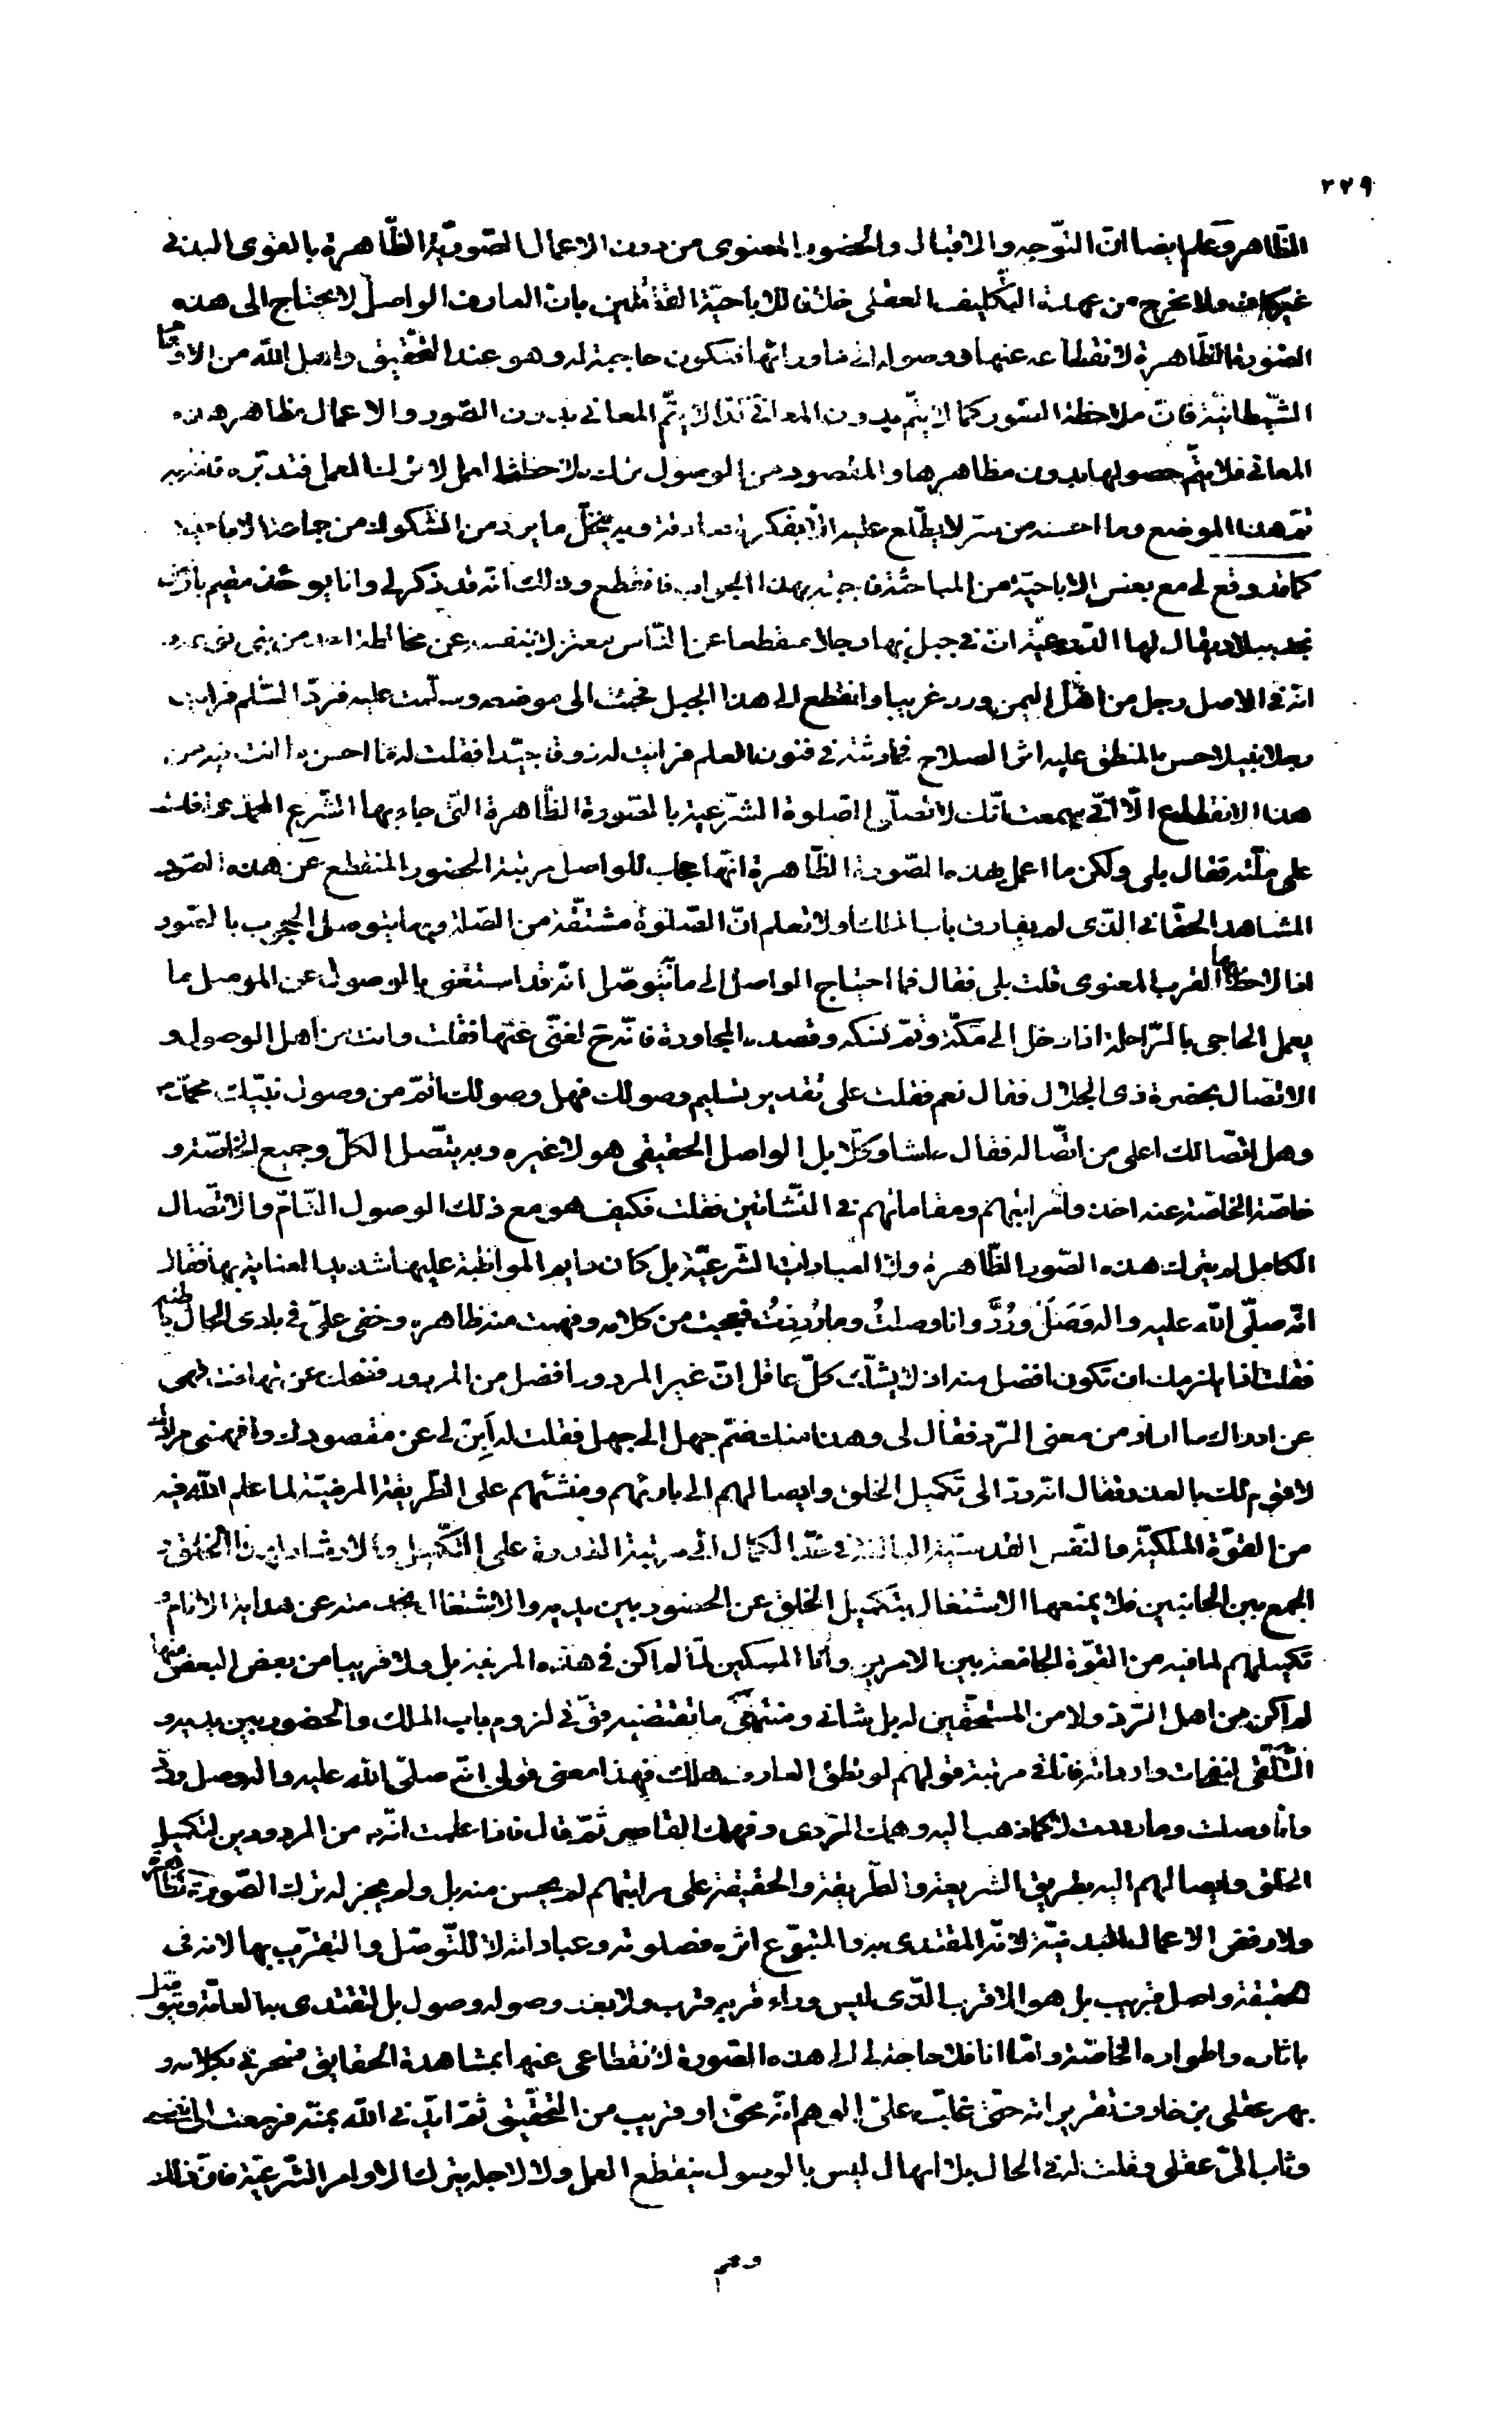 ٢٢٩
الظاهر وعلم ايضا انّ التّوجه والاقبال والحضور المعنوى من دون الاعمال الصّوريّة الظّاهرة بالقوى البدنى
غير كاف ولا مخرج من عهدة التكليف العقلى خلافا للاباحيّة القائلين بانّ العارف الواصل لا يحتاج الى هذه
الصّورة الظّاهرة لانقطاعه عنها ووصوله الى ماورائها فتكون حاجبة له وهو عند التحقيق واصل الله من الاوهام
الشّيطانيّة فانّ ملاحظة الصّور كما لا يتمّ بدون المعانى كذا لا يتمّ المعانى بدون الصّور والاعمال مظاهر هذه
المعانى فلا يتمّ حصولها بدون مظاهرها والمقصود من الوصول ترك ملاحظة العمل لا ترك العمل فتدبّره
ثمّ هذا الموضع وما احسنه من سرّ لا يطّلع عليه الّا بفكر صادقة وبه ينحلّ ما يرد من الشّكوك من جماعة الاباحية
كما قد وقع لى مع بعض الاباحيّة من المباحثة فاجبته بهذا الجواب فانقطع وذلك انّه قد ذكر لى وانا يومئذ مقيم بارض
نجد ببلاد يقال لها الدّرعيّة انّ فى جبل بها رجلا منقطعا عن النّاس معتزلا بنفسه عن مخالطة احد من بنى نوعه و
انّه فى الاصل رجل من اهل اليمن ورد غريبا وانقطع الى هذا الجبل فجئت الى موضعه وسلّمت عليه فردّ السّلام فرايت
رجلا نبيلا حسن المنطق عليه اثر الصلاح فحادثته فى فنون العلم فرايت له ذوقا جيّدا فقلت له ما احسن ما انت فيه من
هذا الانقطاع الّا انّى سمعت انّك لا تصلّى الصّلوة الشّرعية بالصّورة الظّاهرة الّتى جاء بها الشّرع المحمّدى
على ملّته فقال بلى ولكن ما اعمل بهذه الصّورة الظّاهرة انّها حجاب للواصل مرتبة الحضور المنقطع عن هذه الصّور
المشاهد الحقّانى الّذى لم يفارق باب الملك أولا تعلم انّ الصّلوة مشتقّة من الصّلة وبها يتوصّل المحجوب بالصّور
اذا لاحظ بها القرب المعنوى قلت بلى فقال فما احتياج الواصل الى ما يتوصّل انّه قد استغنى بالوصول عن الموصل ما
يعمل الحاجى بالرّاحلة اذا دخل الى مكّة وتمّ نسكه وقصد المجاورة فانّه حَ لغنىّ عنها فقلت وانت من اهل الوصول و
الاتّصال بحضرة ذى الجلال فقال نعم فقلت على تقدير تسليم وصولك فهل وصولك اتمّ من وصول نبيّك محمّد ص
وهل اتّصالك اعلى من اتّصاله فقال حاشا وكلّا بل الواصل الحقيقى هو لا غيره وبه يتّصل الكلّ وجميع الخاصّة و
خاصّة الخاصّة عنه اخذوا مراتبهم ومقاماتهم فى النّشاتين فقلت فكيف هو مع ذلك الوصول التّامّ والاتّصال
الكامل لم يترك هذه الصّور الظّاهرة ولا العبادات الشّرعيّة بل كان دايم المواظبة عليها شديد العناية بها فقال
انّه صلّى الله عليه واله وَصَلَ ورُدَّ وانا وصلتُ وما رُدِدْتُ فعجبت من كلامه وفهمت منه ظاهره وخفى علىّ فى بادى الحال باطنه
فقلت اذا يلزمك ان تكون افضل منه اذ لا يشكّ كلّ عاقل انّ غير المردود افضل من المردود فضحك عن تهافت فهمى
عن ادراك ما اراد من معنى الرّد فقال لى وهذا منك ضمّ جهل الى جهل فقلت له اَبِن لى عن مقصودك وافهمنى مرادك
لاقوم لك بالعذر فقال انّه ردّ الى تكميل الخلق وايصالهم الى بارئهم ومنشئهم على الطّريقة المرضيّة لما علم الله فيه
من القوّة الملكيّة والنّفس القدسيّة البالغة فى حدّ الكمال الى مرتبة القدرة على التّكميل والارشاد لهذا الخلق و
الجمع بين الجانبين فلا يمنعها الاشتغال بتكميل الخلق عن الحضور بين يديه ولا الاشتغال بخدمته عن هداية الانام و
تكميلهم لما فيه من القوّة الجامعة بين الامرين وانا المسكين لمّا لم اكن فى هذه المرتبة بل ولا قريبا من بعض البعض منها
لم اكن من اهل الرّد ولا من المستحقّين له بل شانى ومنتهى ما تقتضيه قوّتى لزوم باب الملك والحضور بين يديه و
التّلقّى لنفحات وارداته فانّا فى مرتبة قولهم لو نطق العارف هلك فهذا معنى قولى انّه صلّى الله عليه واله وصل وردّ
وانا وصلت وما رددت لا كما ذهب اليه وهمك الرّدى وفهمك القاصر ثمّ قال فاذا علمت انّه من المردودين لتكميل
الخلق وايصالهم اليه بطريق الشّريعة والطّريقة والحقيقة على مراتبهم لم يحسن منه بل ولم يجز له ترك الصّورة الظّاهرة
ولا رفض الاعمال البدنيّة لانّه المقتدى به والمتبوّع اثره فصلوته وعباداته لا للتّوصّل والتقرّب بها لانّه فى
حقيقة واصل قريب بل هو الاقرب الّذى ليس وراء قربه قرب ولا بعد وصوله وصول بل لتقتدى به العامّة ويتوصّل
باثاره واطواره الخاصّة وامّا انا فلا حاجة لى الى هذه الصّورة لانقطاعى عنها بمشاهدة الحقايق فسحرنى بكلامه و
بهر عقلى من خارف تقريراته حتّى غلب على الوهم انّه محقّ او قريب من التّحقيق ثمّ ايّدنى الله بمنّه فرجعت الى نفسى
وثاب الىّ عقلى وقلت له فى الحال بلا امهال ليس بالوصول ينقطع العمل ولا لاجله يترك الاوامر الشّرعيّة فانّ ذلك
وهم